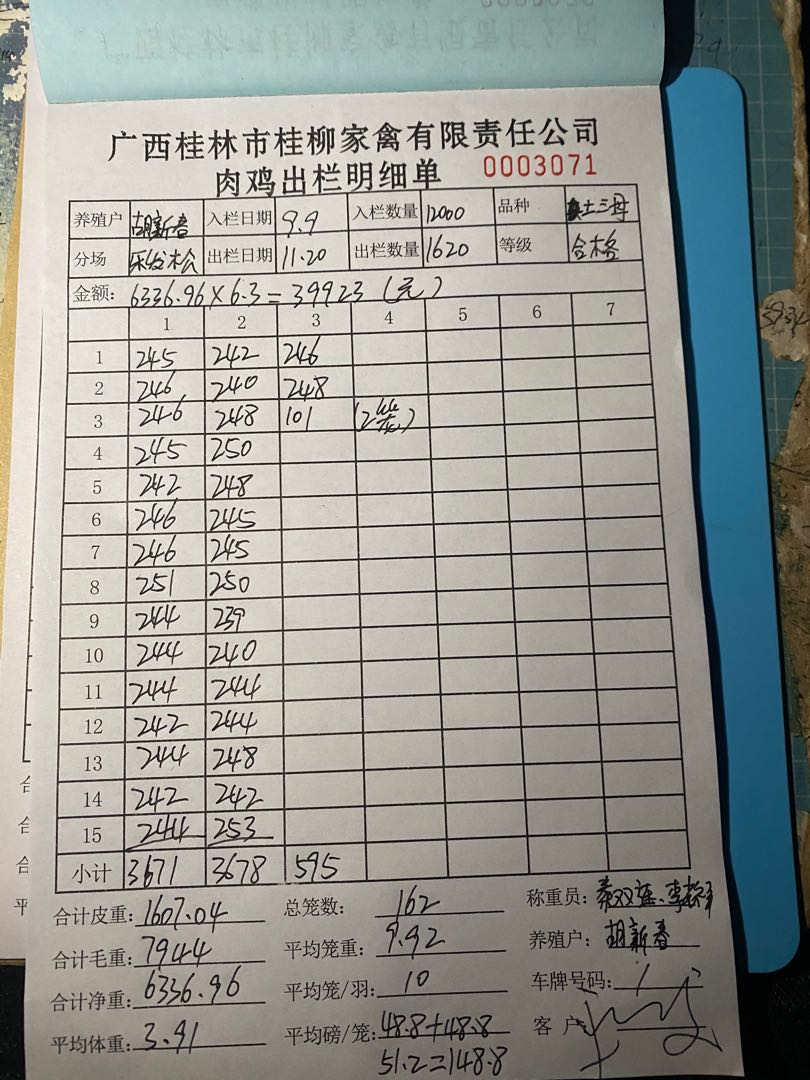 广西桂林市桂柳家禽有限责任公司
肉鸡出栏明细单 0003071
养殖户 胡新春 入栏日期 9.9 入栏数量 12000 品种 土三母
分场 出栏日期 11.20 出栏数量 1620 等级 合格
金额: 6336.96×6.3=39923(元)
1 2 3 4 5 6 7
1 245 242 246
2 246 240 248
3 246 248 101 (2笼)
4 245 250
5 242 248
6 246 245
7 246 245
8 251 250
9 244 239
10 244 240
11 244 244
12 242 244
13 244 248
14 242 242
15 244 253
小计 3671 3678 595
合计皮重: 1607.04 总笼数: 162 称重员:
合计毛重: 7944 平均笼重: 9.92 养殖户: 胡新春
合计净重: 6336.96 平均笼/羽: 10 车牌号码:
平均体重: 3.91 平均磅/笼: 48.8+48.8 客户
51.2=148.8